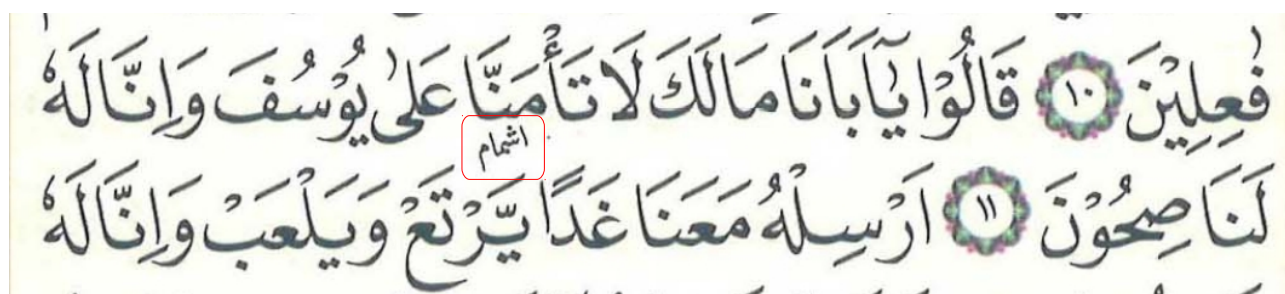 فٰعِلِيْنَ ١٠ قَالُوْا يٰٓاَبَانَا مَالَكَ لَا تَأْمَنَّا عَلٰى يُوْسُفَ وَاِنَّا لَهٗ
اشمام
لَنَاصِحُوْنَ ١١ اَرْسِلْهُ مَعَنَا غَدًا يَّرْتَعْ وَيَلْعَبْ وَاِنَّا لَهٗ